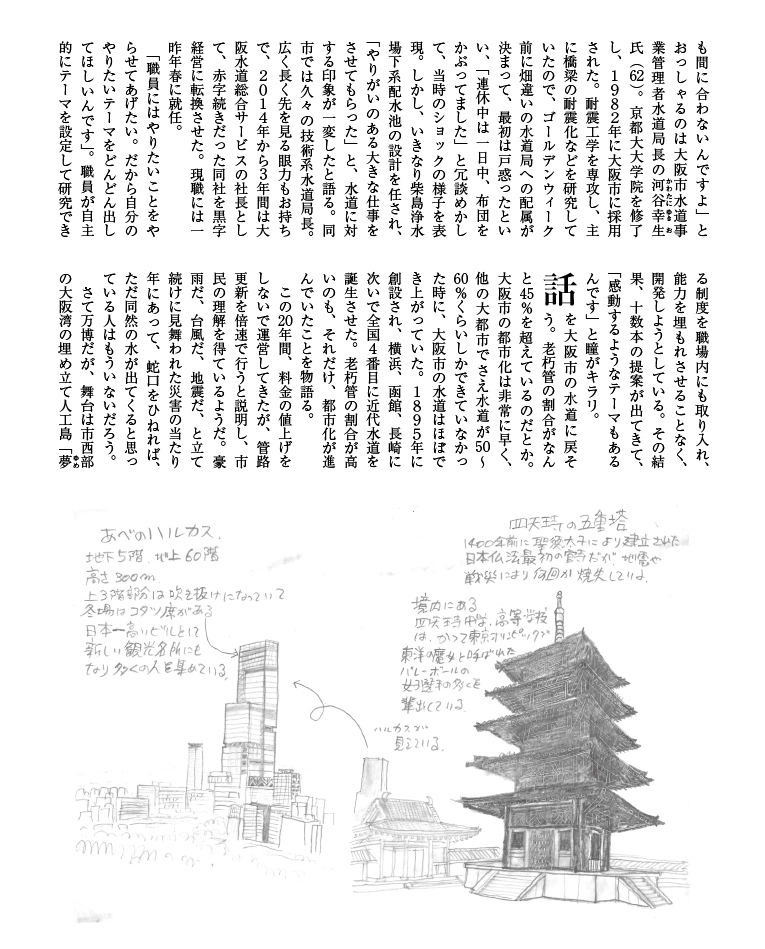 も間に合わないんですよ」と
おっしゃるのは大阪市水道事
業管理者水道局長の河谷幸生
かわたにゆきお
氏（62）。京都大大学院を修了
し、1982年に大阪市に採用
された。耐震工学を専攻し、主
に橋梁の耐震化などを研究して
いたので、ゴールデンウィーク
前に畑違いの水道局への配属が
決まって、最初は戸惑ったとい
い、「連休中は一日中、布団を
かぶってました」と冗談めかし
て、当時のショックの様子を表
現。しかし、いきなり柴島浄水
場下系配水池の設計を任され、
「やりがいのある大きな仕事を
させてもらった」と、水道に対
する印象が一変したと語る。同
市では久々の技術系水道局長。
広く長く先を見る眼力もお持ち
で、2014年から3年間は大
阪水道総合サービスの社長とし
て、赤字続きだった同社を黒字
経営に転換させた。現職には一
昨年春に就任。
「職員にはやりたいことをや
らせてあげたい。だから自分の
やりたいテーマをどんどん出し
てほしいんです」。職員が自主
的にテーマを設定して研究でき
る制度を職場内にも取り入れ、
能力を埋もれさせることなく、
開発しようとしている。その結
果、十数本の提案が出てきて、
「感動するようなテーマもある
んです」と瞳がキラリ。
話を大阪市の水道に戻そ
う。老朽管の割合がなん
と45％を超えているのだとか。
大阪市の都市化は非常に早く、
他の大都市でさえ水道が50～
60％くらいしかできていなかっ
た時に、大阪市の水道はほぼで
き上がっていた。1895年に
創設され、横浜、函館、長崎に
次いで全国4番目に近代水道を
誕生させた。老朽管の割合が高
いのも、それだけ、都市化が進
んでいたことを物語る。
この20年間、料金の値上げを
しないで運営してきたが、管路
更新を倍速で行うと説明し、市
民の理解を得ているようだ。豪
雨だ、台風だ、地震だ、と立て
続けに見舞われた災害の当たり
年にあって、蛇口をひねれば、
ただ同然の水が出てくると思っ
ている人はもういないだろう。
さて万博だが、舞台は市西部
の大阪湾の埋め立て人工島「夢
ゆめ
あべのハルカス.
地下5階 地上60階
高さ300m
上3階部分は吹き抜けになっていて
冬場はコタツ席がある
日本一高いビルとして
新しい観光名所にも
なり多くの人を集めている.
四天王寺の五重塔
1400年前に聖徳太子により建立された
日本仏法最初の官寺だが 地震や
戦災により何回か焼失している.
境内にある
四天王寺中学、高等学校
は、かつて東京オリンピックで
東洋の魔女と呼ばれた
バレーボールの
女子選手の多くを
輩出している.
ハルカスが
見えている.